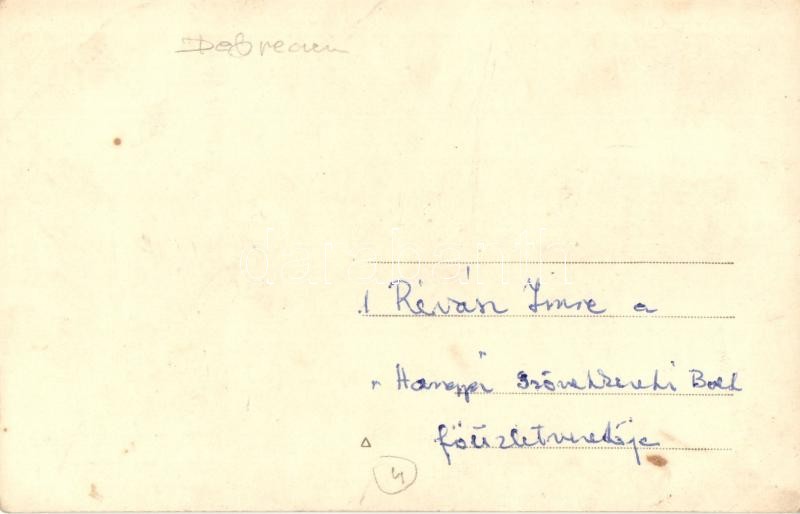 Debrecen
darabanth
1 Révász Imre a
"Hangya" Szövetkezeti Bolt
főüzletvezetője
4